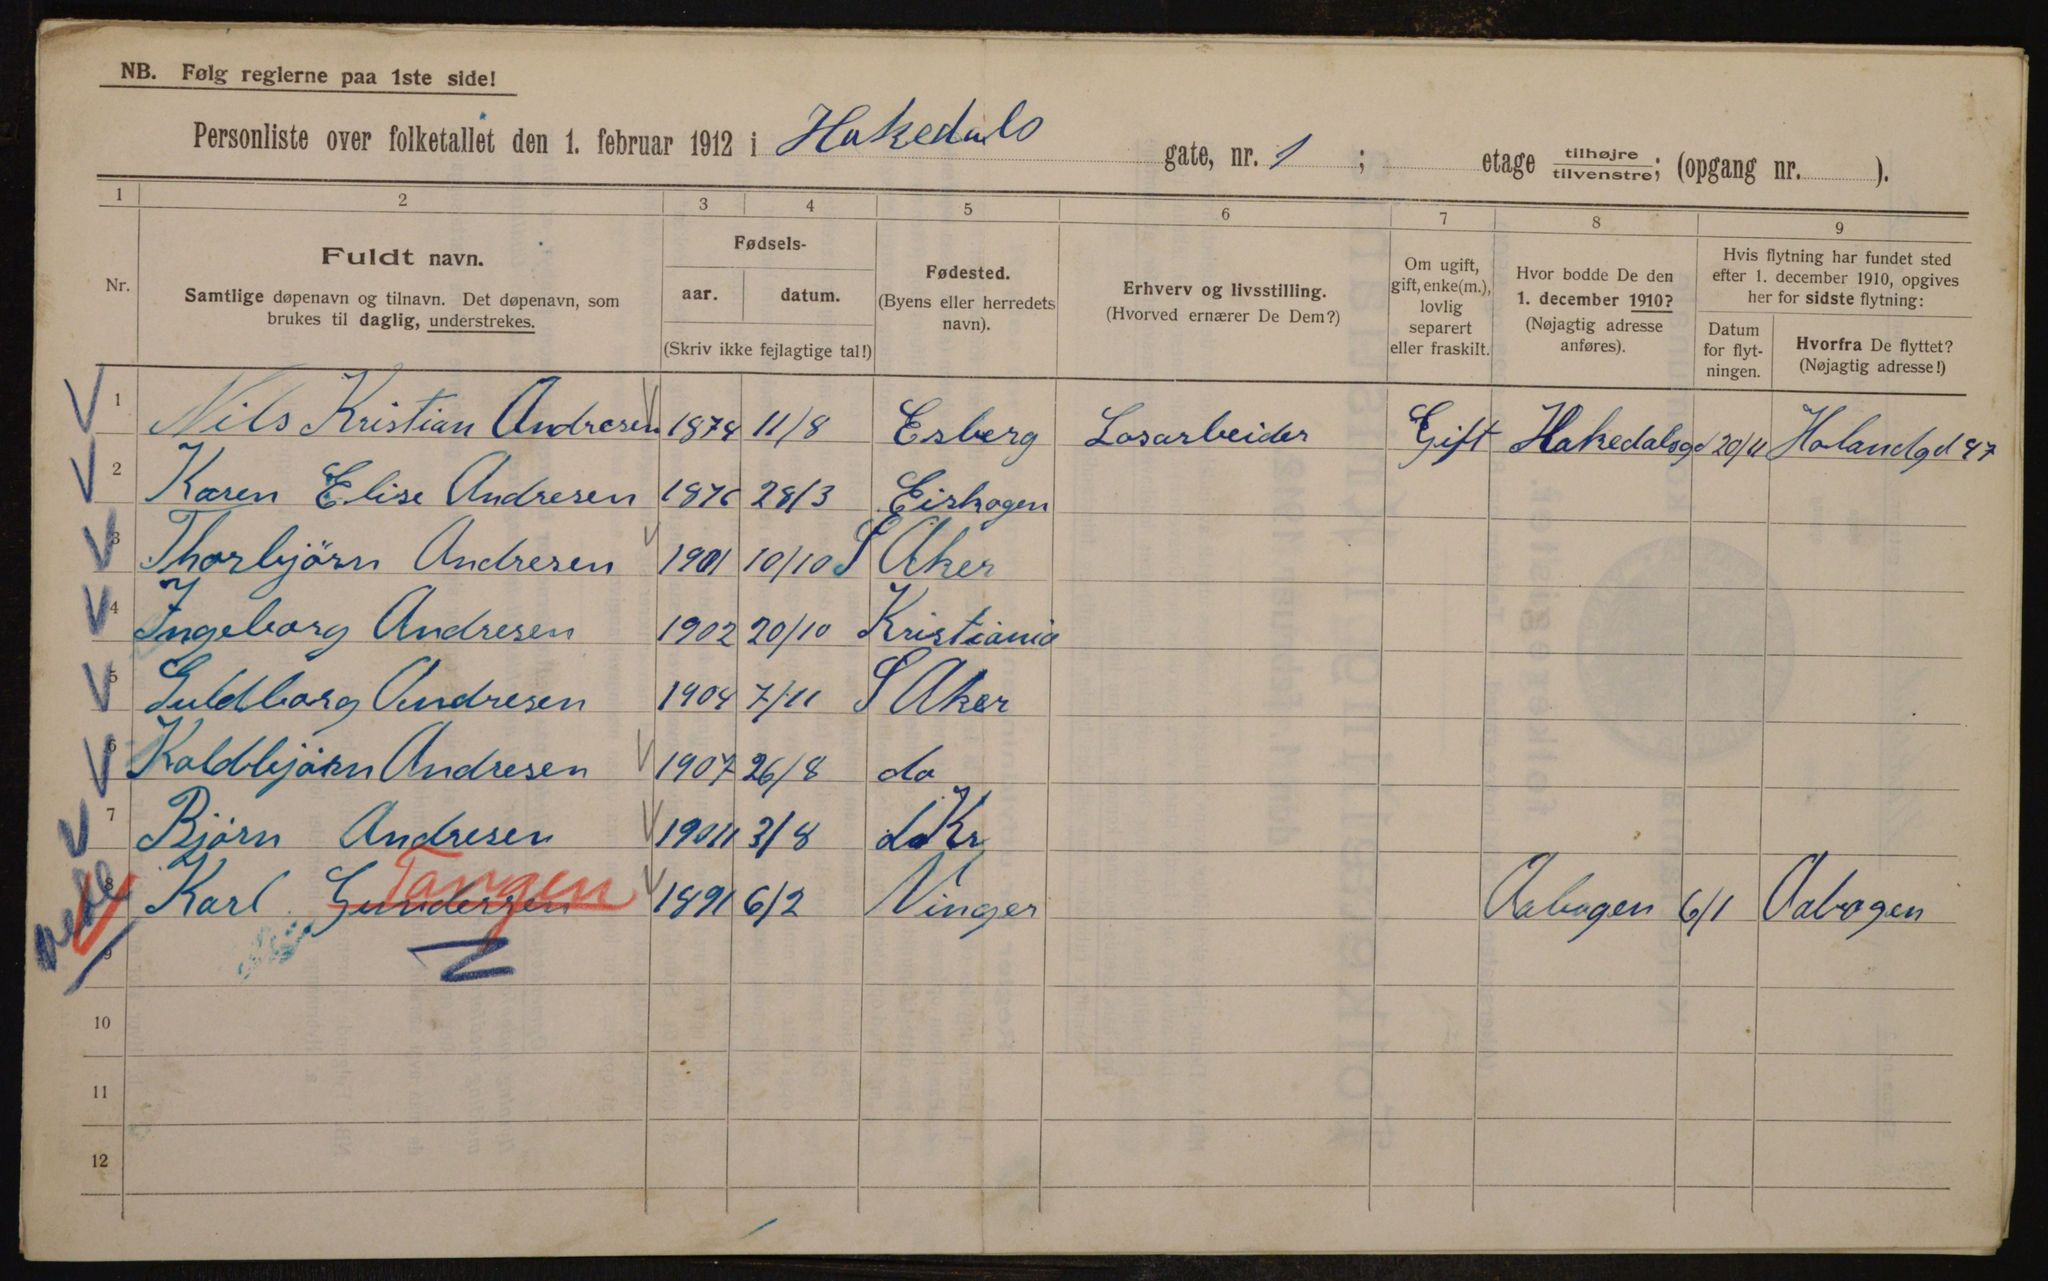 NB. Følg reglerne paa 1ste side!
Personliste over folketallet den 1. februar 1912 i Hakedals gate, nr. 1 ; etage tilhøjre tilvenstre; (opgang nr. ).
1 2 3 4 5 6 7 8 9
Nr.
Fuldt navn.
Samtlige døpenavn og tilnavn. Det døpenavn, som
brukes til daglig, understrekes.
Fødsels-
aar. datum.
(Skriv ikke fejlagtige tal!)
Fødested.
(Byens eller herredets
navn).
Erhverv og livsstilling.
(Hvorved ernærer De Dem?)
Om ugift,
gift, enke(m.),
lovlig
separert
eller fraskilt.
Hvor bodde De den
1. december 1910?
(Nøjagtig adresse
anføres).
Hvis flytning har fundet sted
efter 1. december 1910, opgives
her for sidste flytning:
Datum
for flyt-
ningen.
Hvorfra De flyttet?
(Nøjagtig adresse!)
1 Nils Kristian Andresen 1878 11/8 Esberg Losarbeider Gift Hakedalsgd 20/11 Holandgd 47
2 Karen Elise Andresen 1876 28/3 Eishogen
3 Thorbjörn Andresen 1901 10/10 S Aker
4 Ingeborg Andresen 1902 20/10 Kristiania
5 Guldborg Andresen 1904 7/11 S Aker
6 Koldbjørn Andresen 1907 26/8 do
7 Bjørn Andresen 1911 3/8 do Kr
8 Karl Gundersen Tangen 1891 6/2 Vinger Aabogen 6/1 Aabogen
9
10
11
12